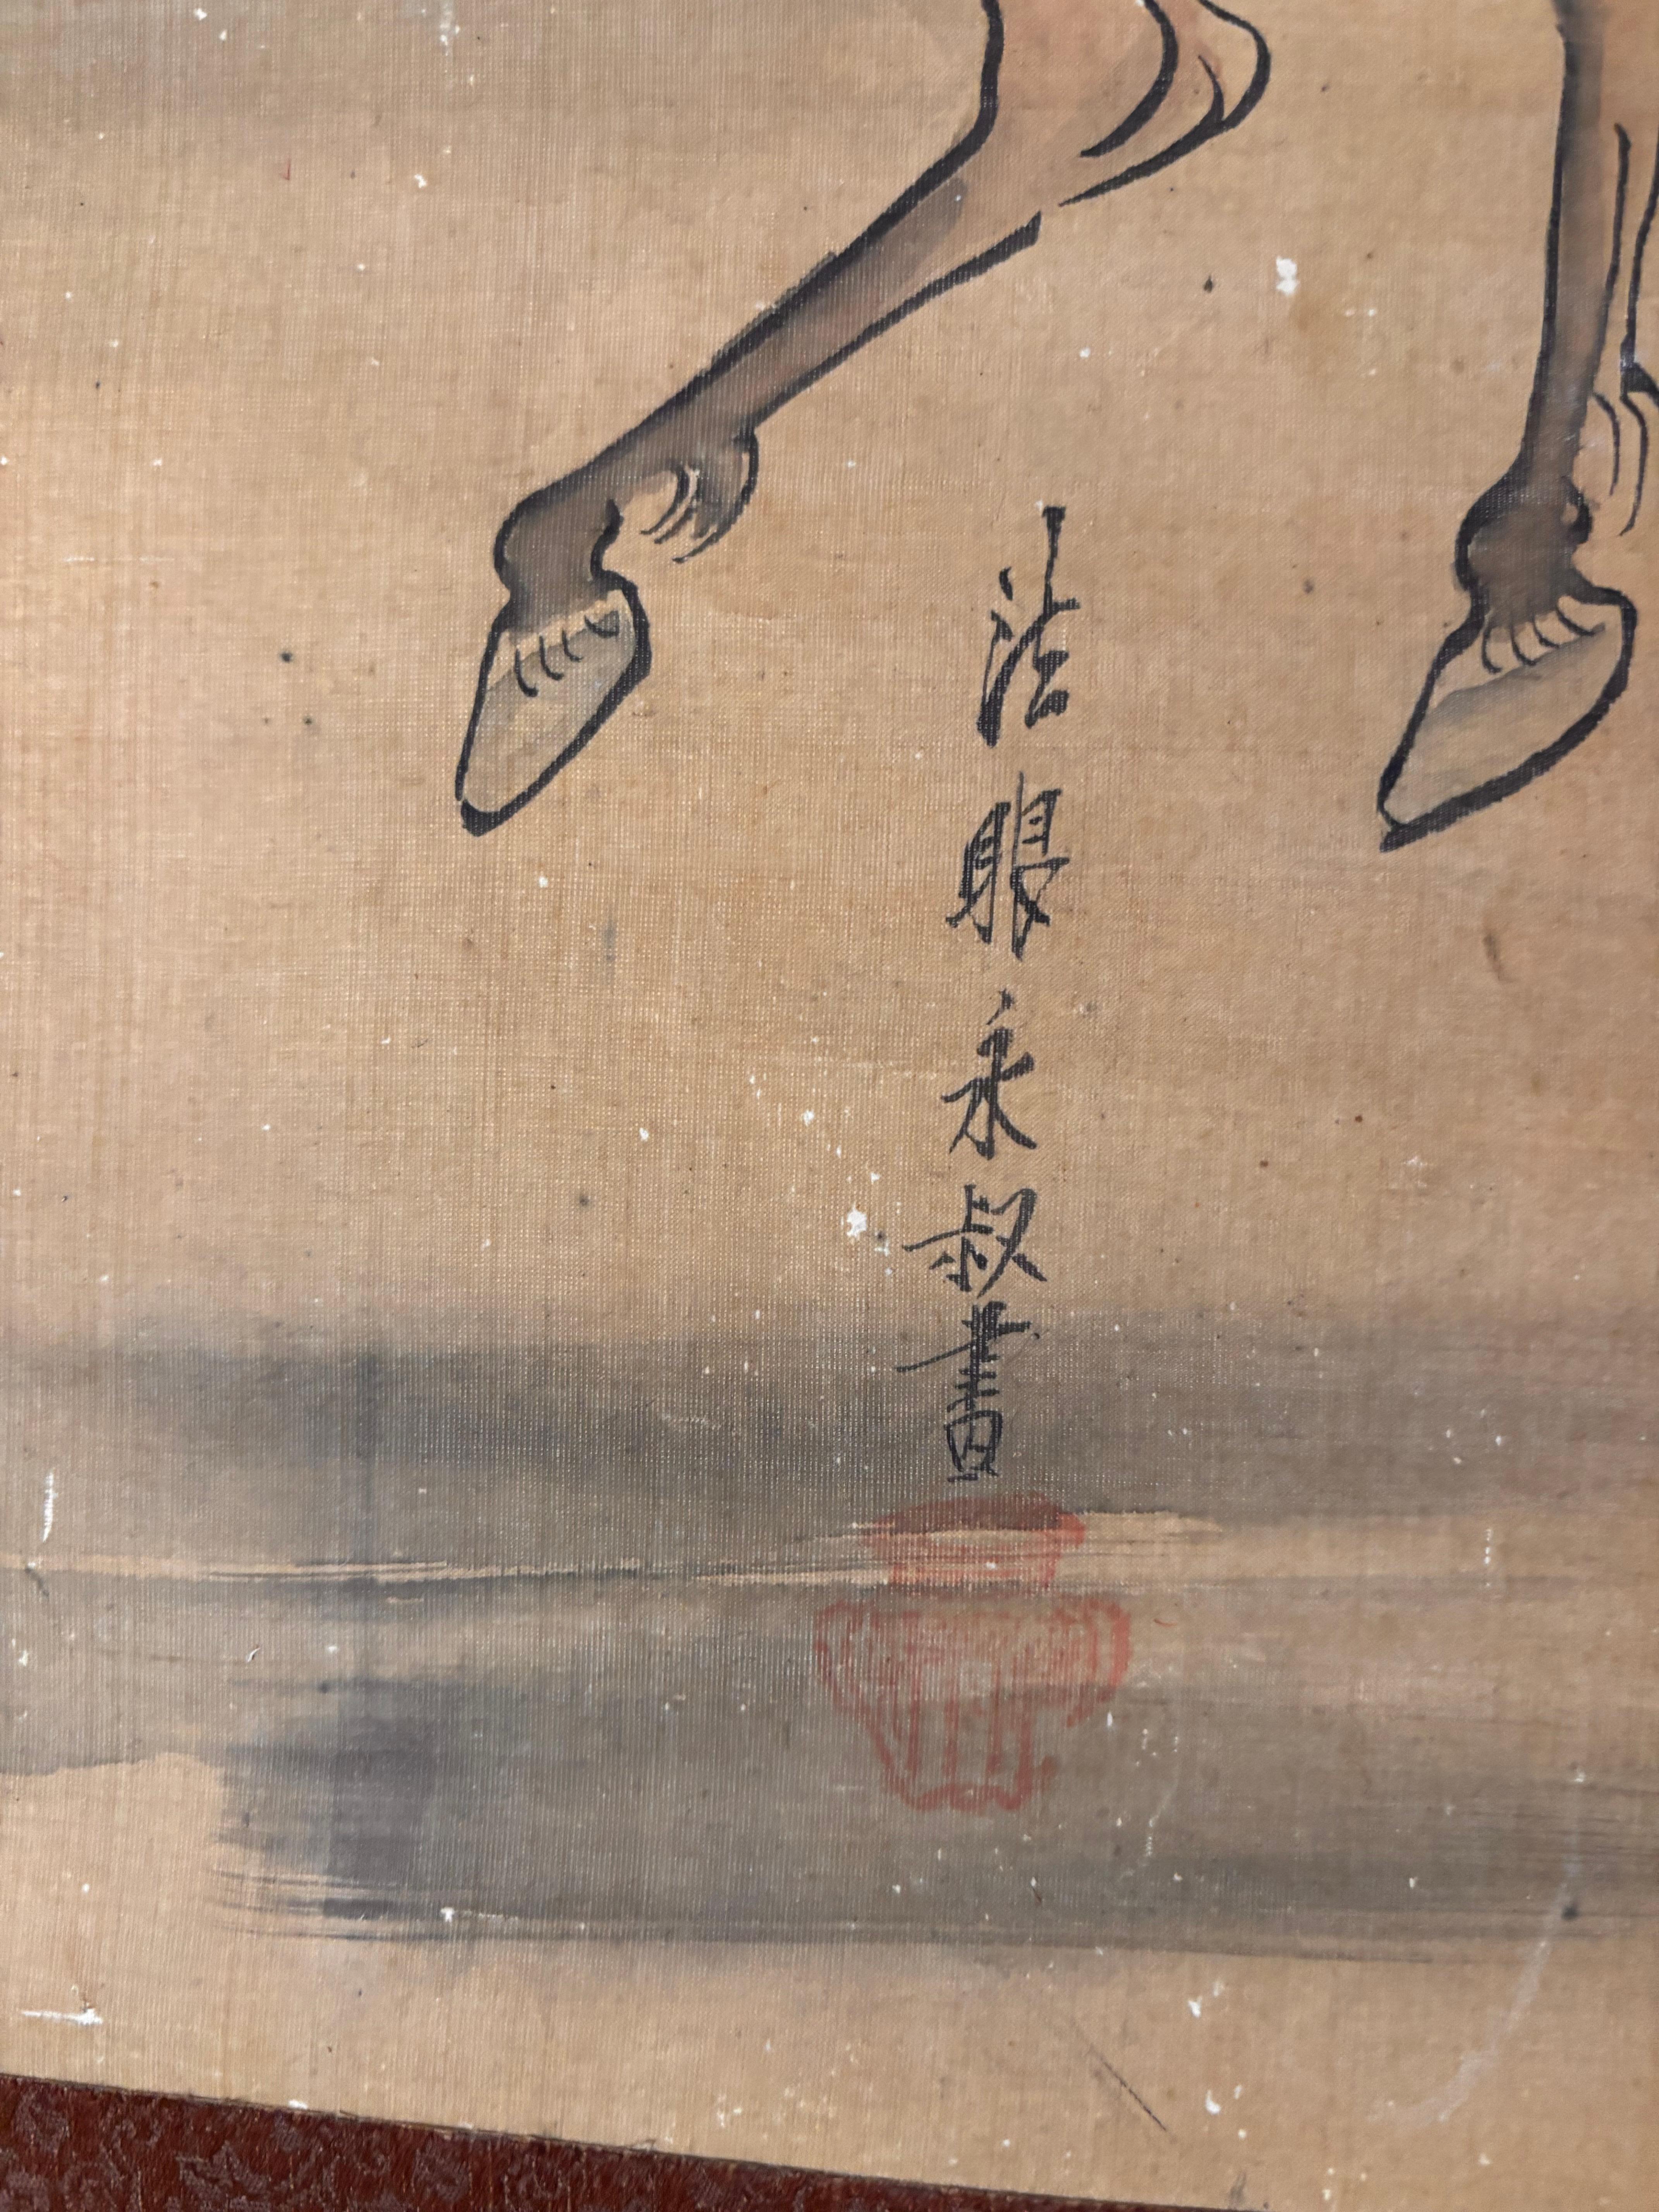 法眼永叔畫